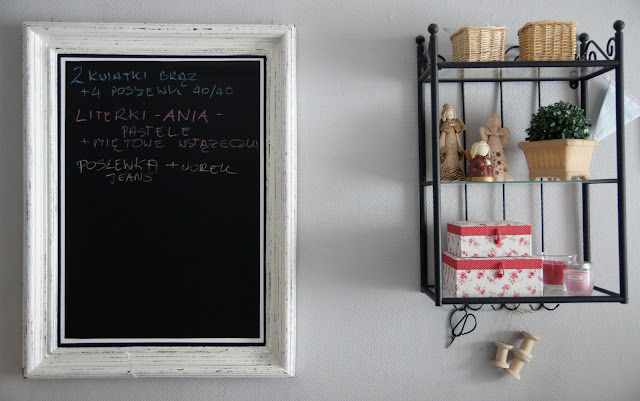 2 KWIATKI BRĄZ
+4 POSZEWKI 40/40
LITERKI - ANIA -
PASTELE
+ MIĘTOWE WSTĄŻECZKI
POSZEWKA + WOREK
JEANS